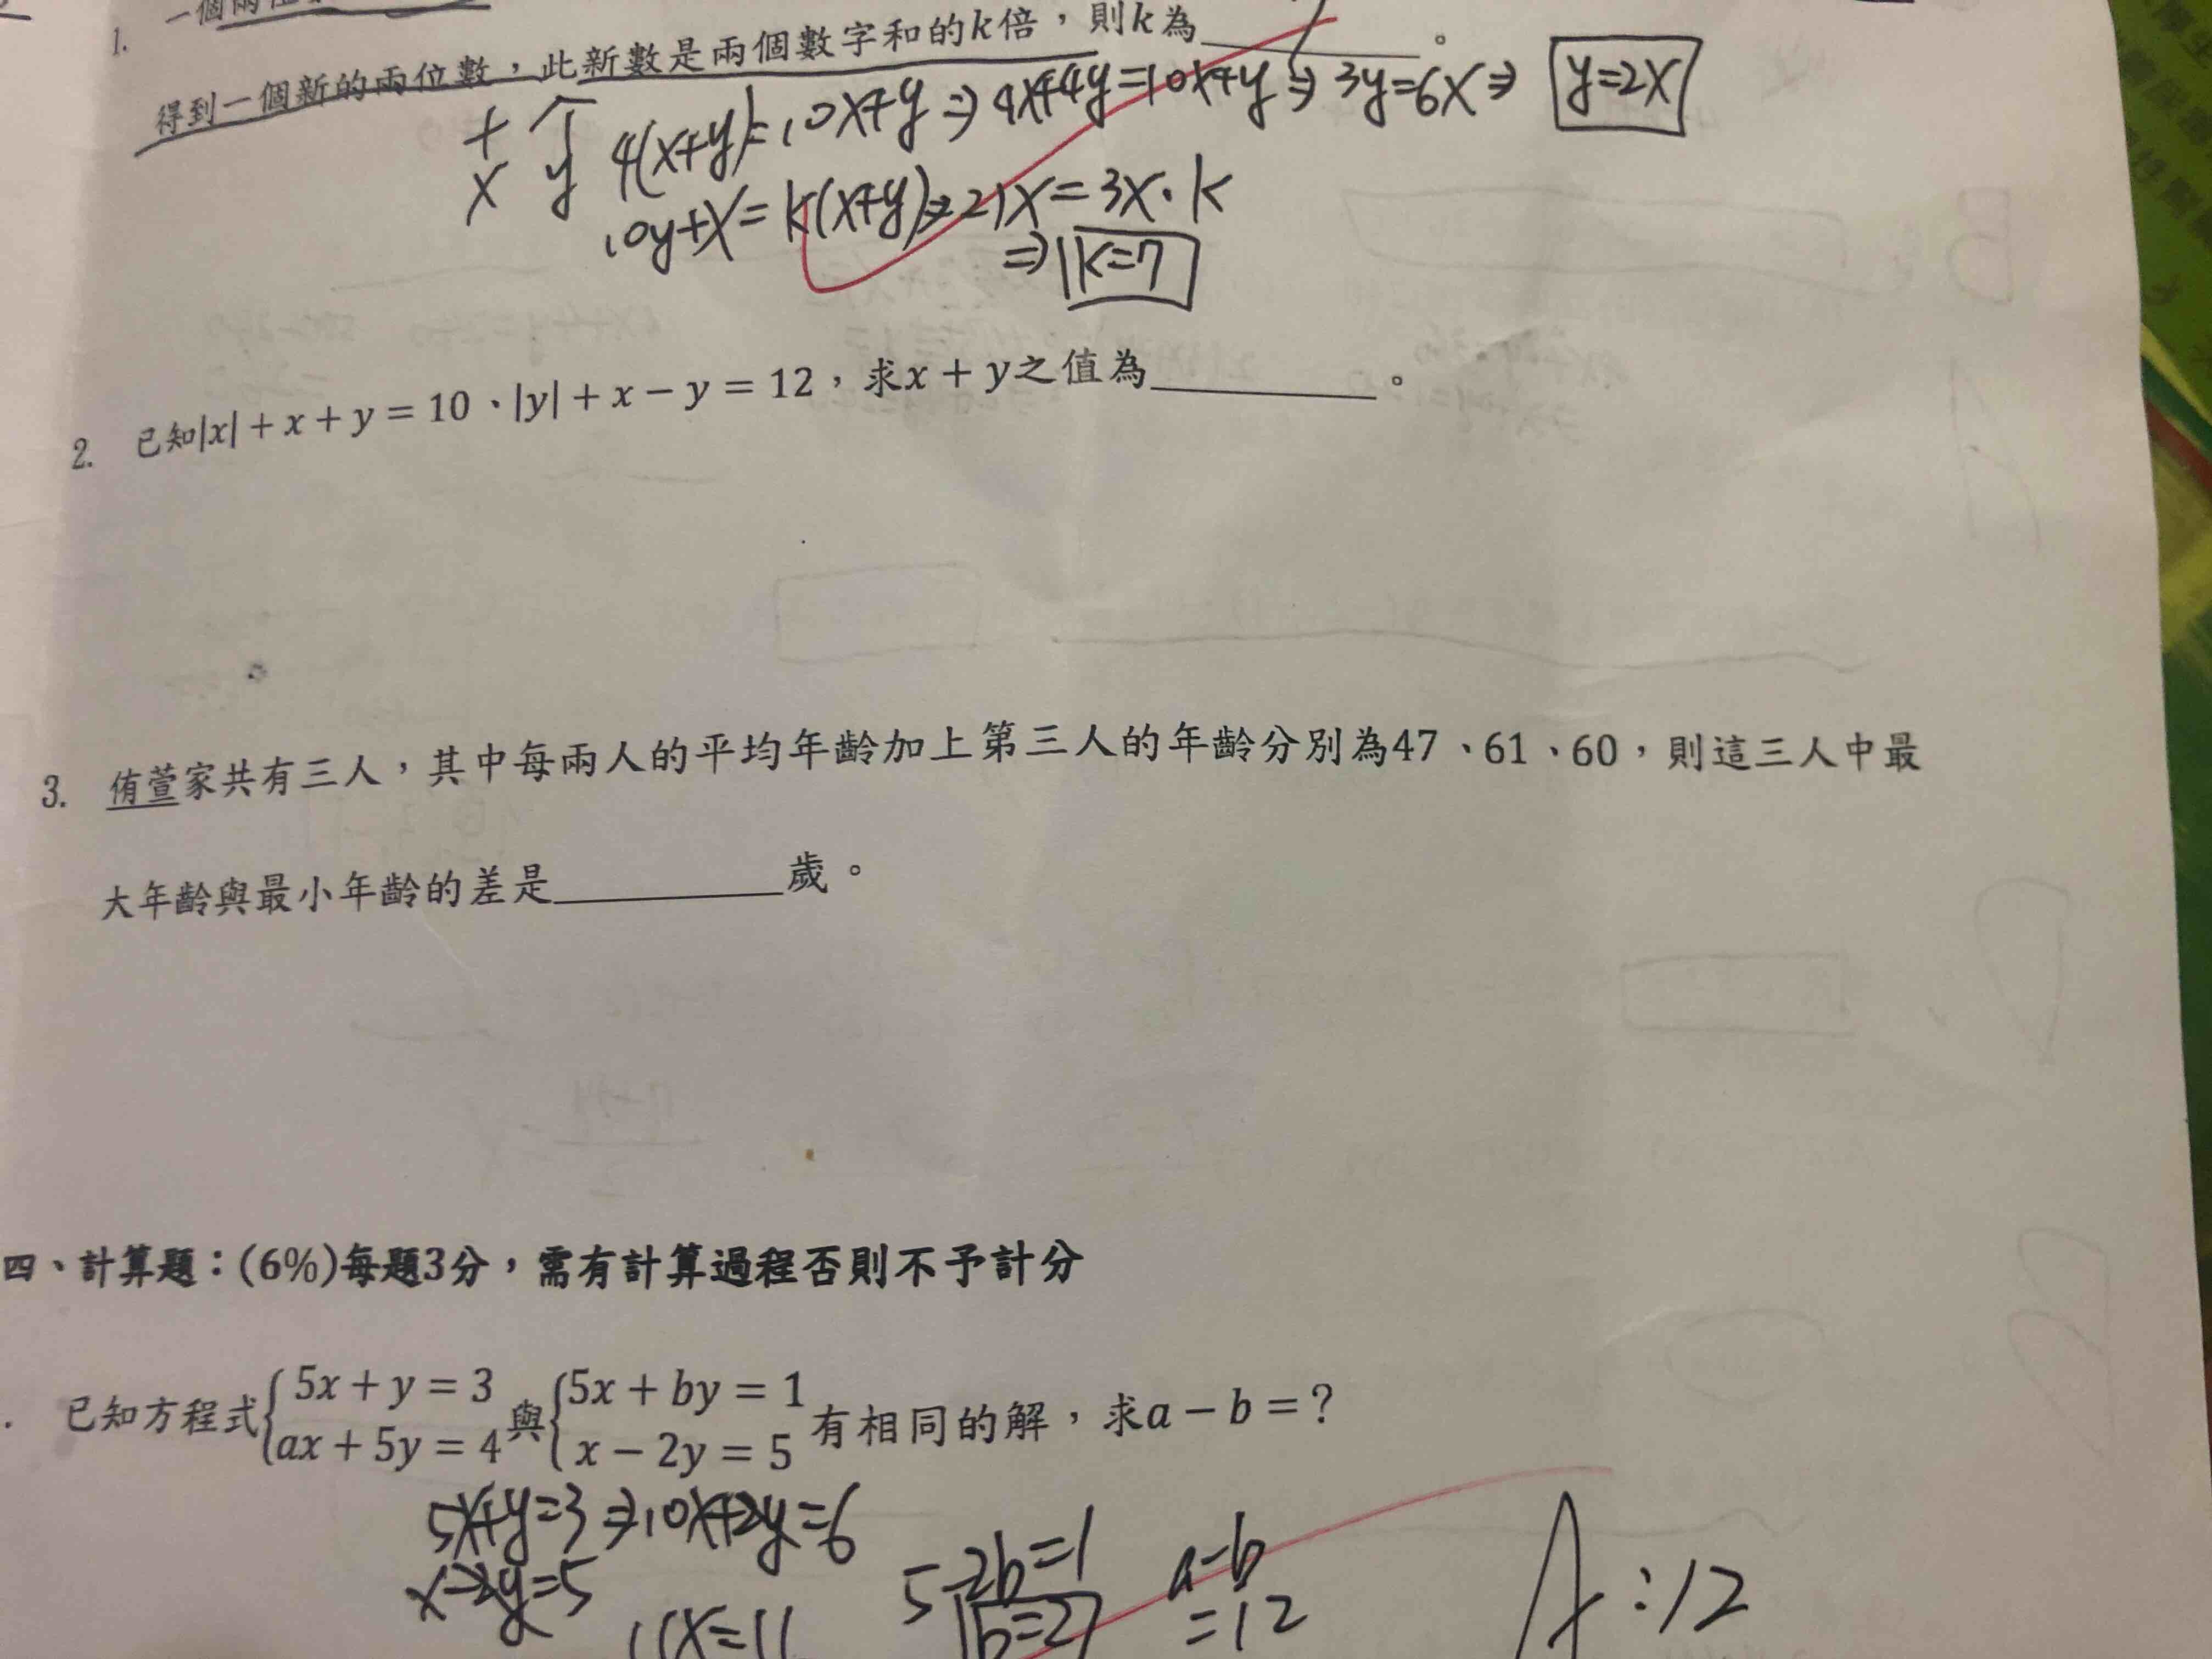 1. 一個兩位
得到一個新的兩位數，此新數是兩個數字和的k倍，則k為________。
十 個
x y 4(x+y)=10x+y ⇒ 4x+4y=10x+y ⇒ 3y=6x ⇒ y=2x
10y+x=k(x+y) ⇒ 21x=3x·k
⇒ k=7
2. 已知|x|+x+y=10、|y|+x−y=12，求x+y之值為________。
3. 侑萱家共有三人，其中每兩人的平均年齡加上第三人的年齡分別為47、61、60，則這三人中最
大年齡與最小年齡的差是________歲。
四、計算題：(6%)每題3分，需有計算過程否則不予計分
. 已知方程式{5x+y=3 ax+5y=4 與{5x+by=1 x−2y=5 有相同的解，求a−b=？
5x+y=3 ⇒ 10x+2y=6
x-2y=5
11x=11
5-2b=1
b=2
a-b
=12
A:12